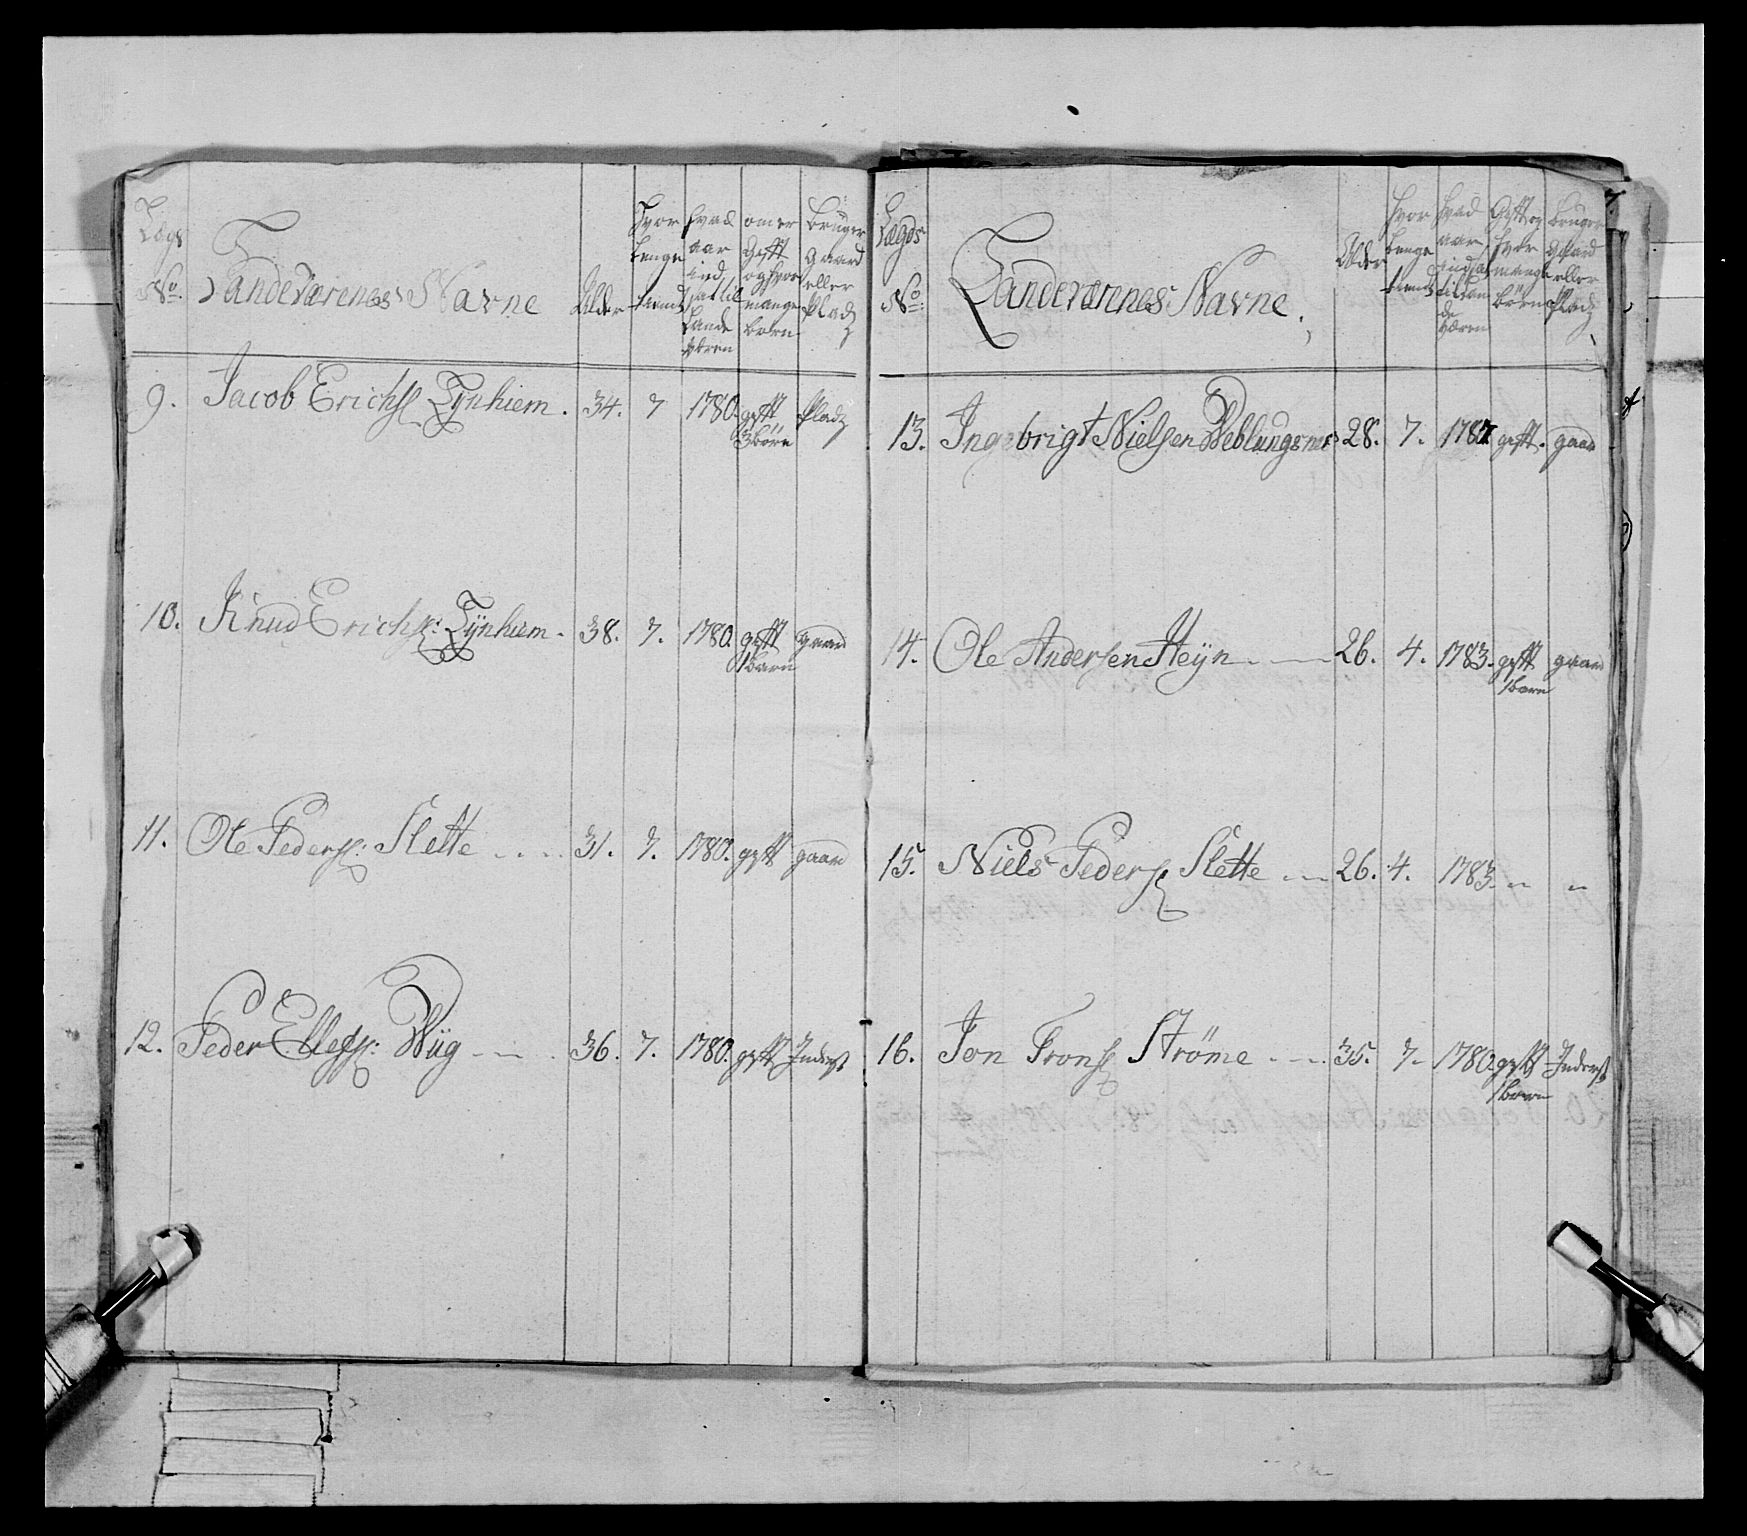 Lægs No. Landeværenes Navne Alder Hvor lenge tient hvad aar indsat til Lande væren om er gift og hvor mange børn bruger gaard eller Plads
9. Jacob Erichs: Tynhiem. 34. 7 1780. gift 3 børn Plads
10. Knud Erichs: Tÿnhiem. 38. 7. 1780. gift 1 barn gaard
11. Ole Peders: Slette 31. 7. 1780. gift gaard
12. Peder Wÿg 36. 7. 1780. gift Inderst
7
Lægds No. Landeværenes Navne. Alder hvor lenge tient hvad aar indsat til Lan de væren Gift og hvor mange børn bruger gaard eller Plads
13. Ingebrigt Nielsen Weblungsnes 28. 7. gift. gaard
14. Ole Andersen Heÿn 26. 4. 1783. gift 1 barn gaard
15. Niels Peders Slette 26. 4. 1783. " "
16. Jon Trons Strøme 35. 7 1780. gift 1 barn Inderst